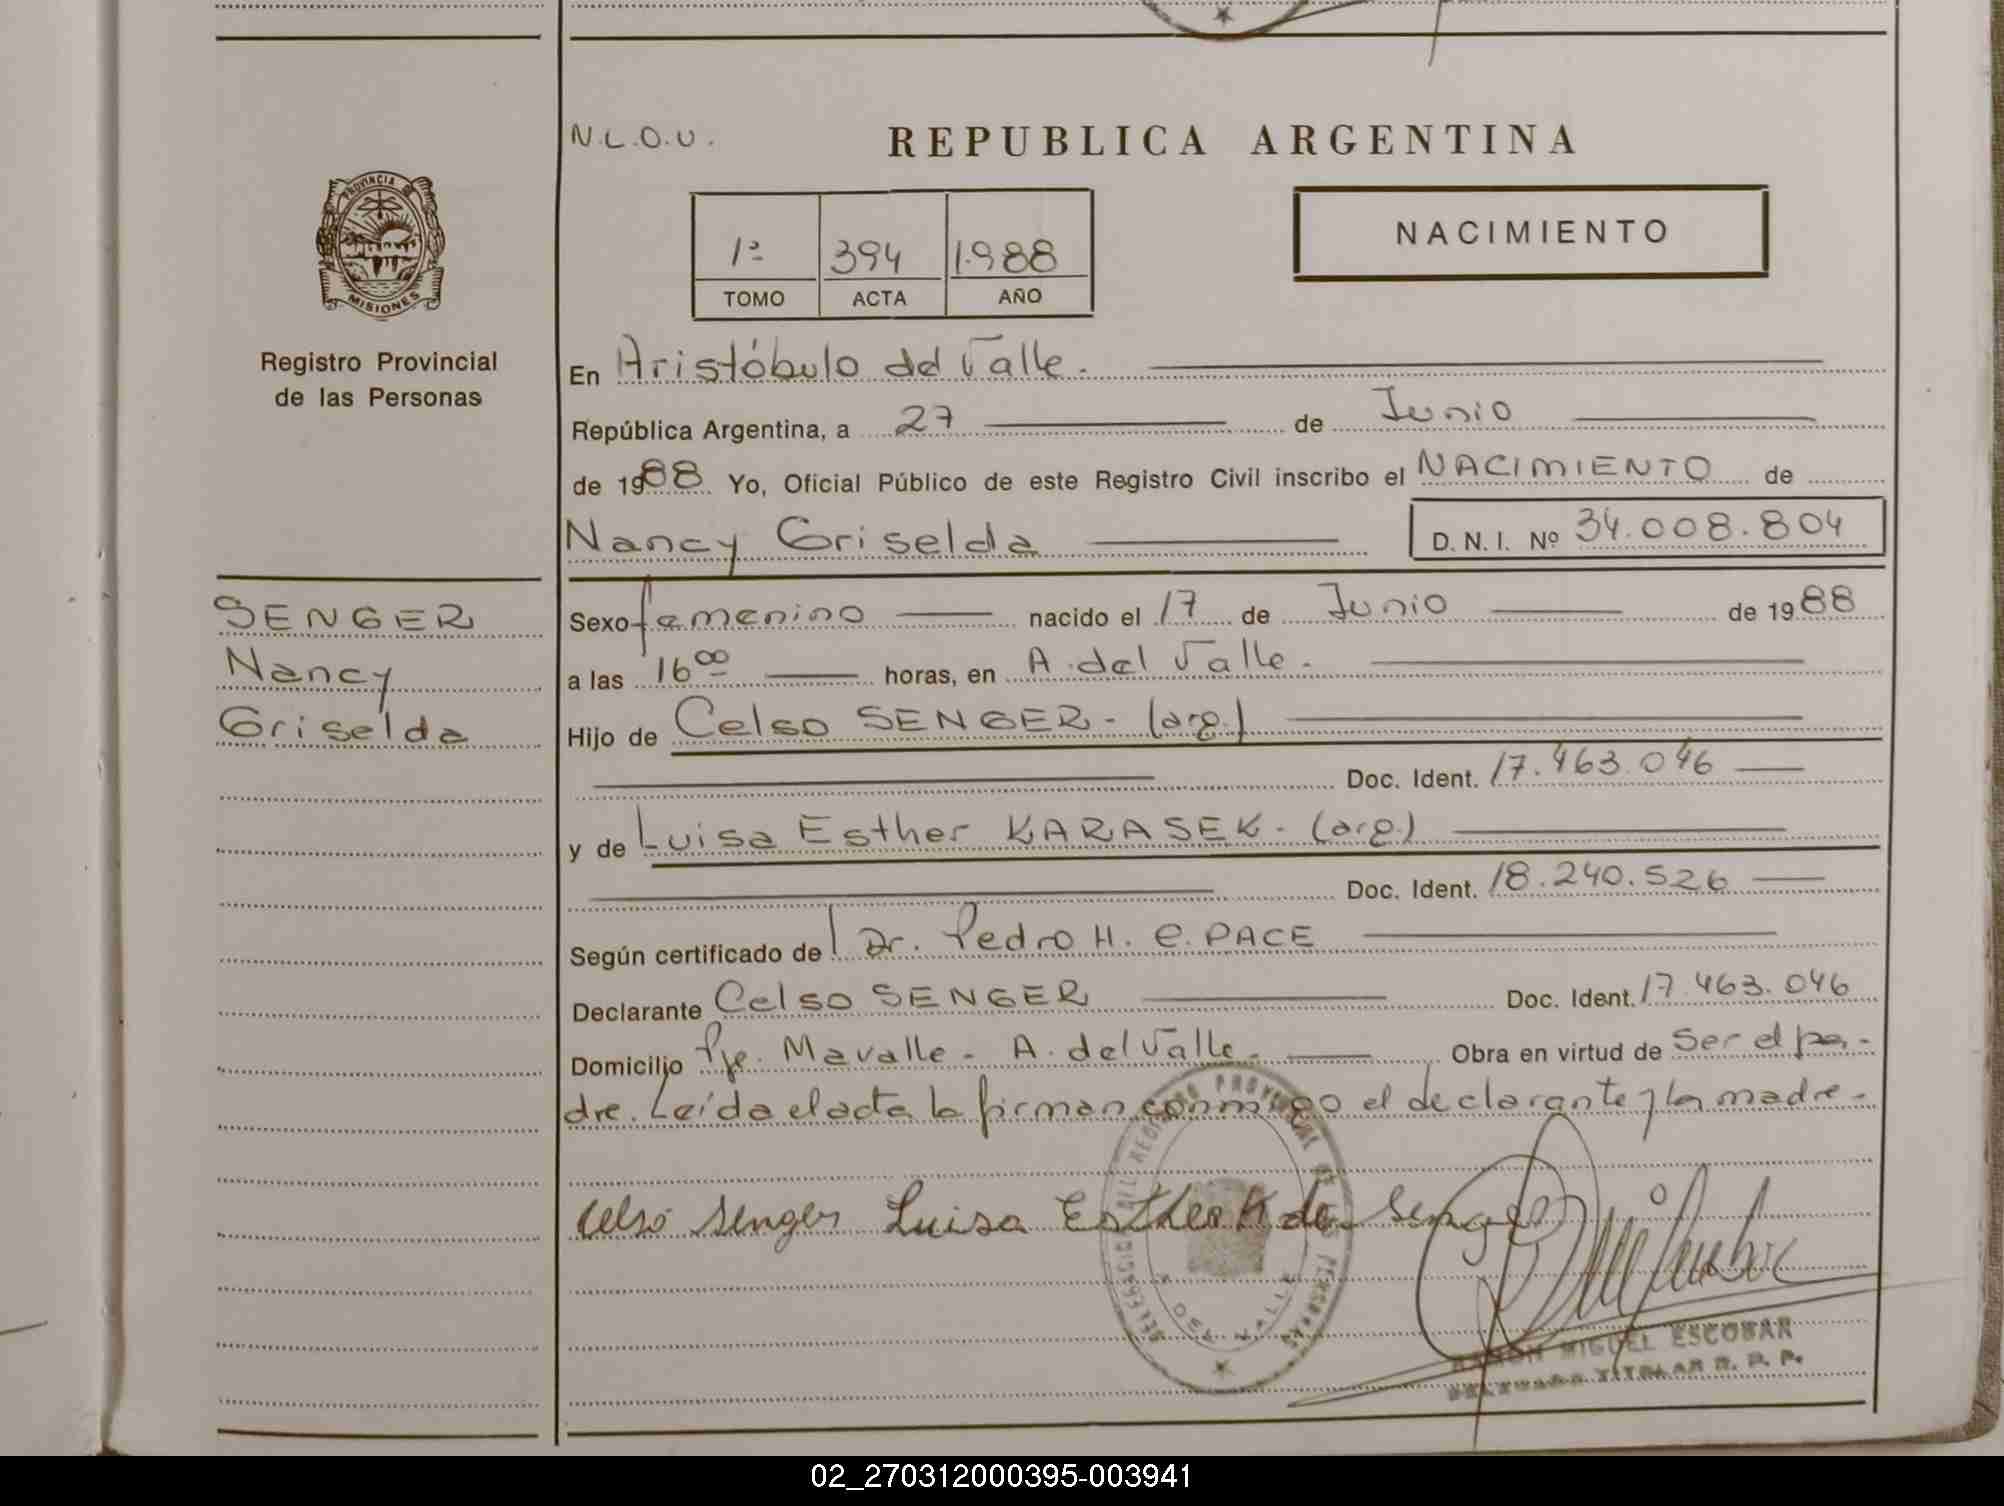 N.L.O.U.
REPUBLICA ARGENTINA
PROVINCIA DE
MISIONES
1ª 394 1.988
TOMO ACTA AÑO
NACIMIENTO
Registro Provincial
de las Personas
En Aristóbulo del Valle.
República Argentina, a 27 de Junio
de 1988 Yo, Oficial Público de este Registro Civil inscribo el NACIMIENTO de
Nancy Griselda D.N.I. Nº 34.008.804
SENGER
Nancy
Griselda
Sexo femenino nacido el 17 de Junio de 1988
a las 16 00 horas, en A. del Valle.
Hijo de Celso SENGER - (arg.)
Doc. Ident. 17.463.046
y de Luisa Esther KARASEK - (arg.)
Doc. Ident. 18.240.526
Según certificado de Dr. Pedro H. C. PACE
Declarante Celso SENGER Doc. Ident. 17.463.046
Domicilio Pje. Mavalle - A. del Valle. Obra en virtud de Ser el pa-
dre. Leída el acta la firman conmigo el declarante y la madre.
REGISTRO PROVINCIAL DE LAS PERSONAS
DEL VALLE
Celso Senger Luisa Esther K de Senger
RAMON MIGUEL ESCOBAR
DELEGADO TITULAR R. P. P.
02_270312000395-003941